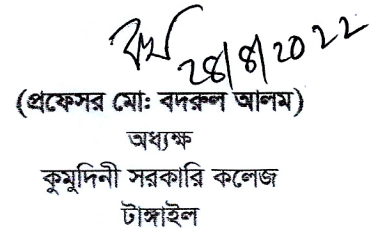 28/8/2022
(প্রফেসর মো: বদরুল আলম)
অধ্যক্ষ
কুমুদিনী সরকারি কলেজ
টাঙ্গাইল